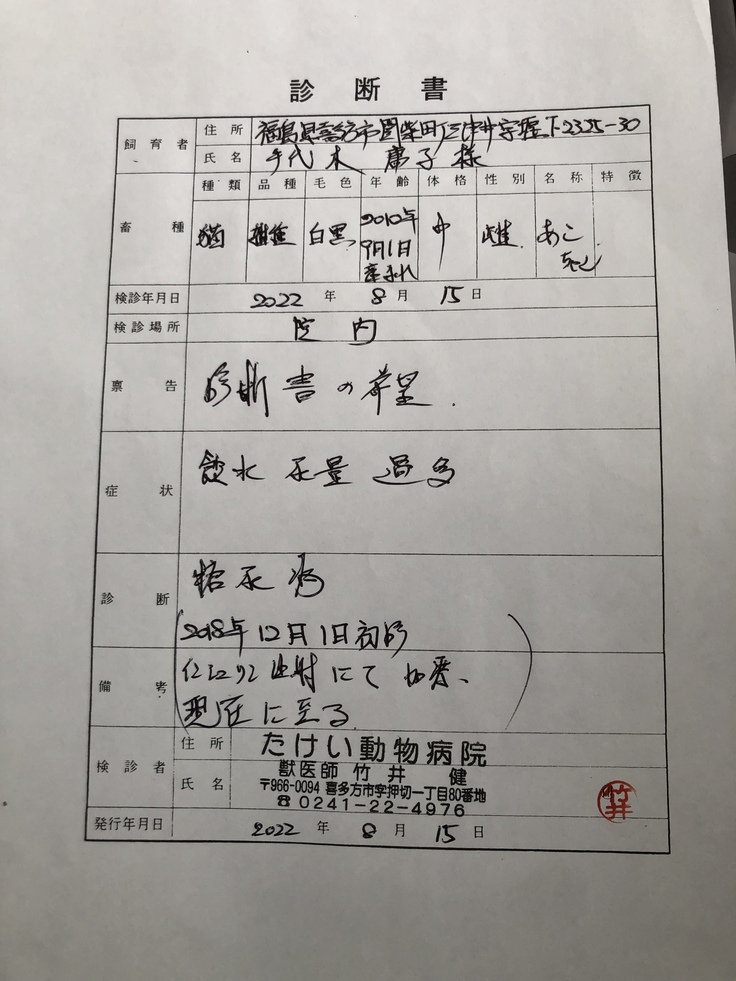 診断書
飼育者
住所 福島県喜多方市関柴町三津井字堀下2325-30
氏名 千代木 子様
畜種
種類 品種 毛色 年齢 体格 性別 名称 特徴
猫 雑種 白黒 2010年9月1日産まれ 中 雌 あこちゃん
検診年月日 2022年8月15日
検診場所 院内
稟告 診断書の希望.
症状 飲水 尿量 過多
診断 糖尿病
(2018年12月1日初診
備考 インシュリン注射にて 改善、
現在に至る)
検診者
住所 たけい動物病院
獣医師 竹井 健
氏名 〒966-0094 喜多方市字押切一丁目80番地
☎0241-22-4976
竹井
発行年月日 2022年8月15日